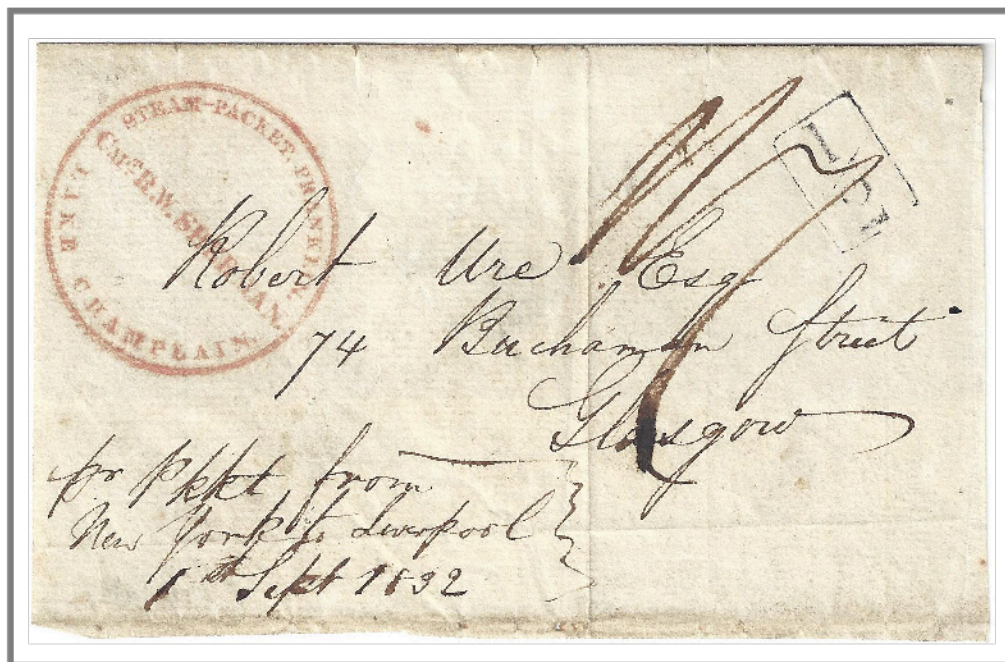 STEAM-PACKET FRANKLIN.
CAPT. R.W. SHERMAN.
LAKE CHAMPLAIN.
Robert Ure Esq
74 Buchanan Street
Glasgow
pr pkkt from
New York to Liverpool
1st Sept 1832